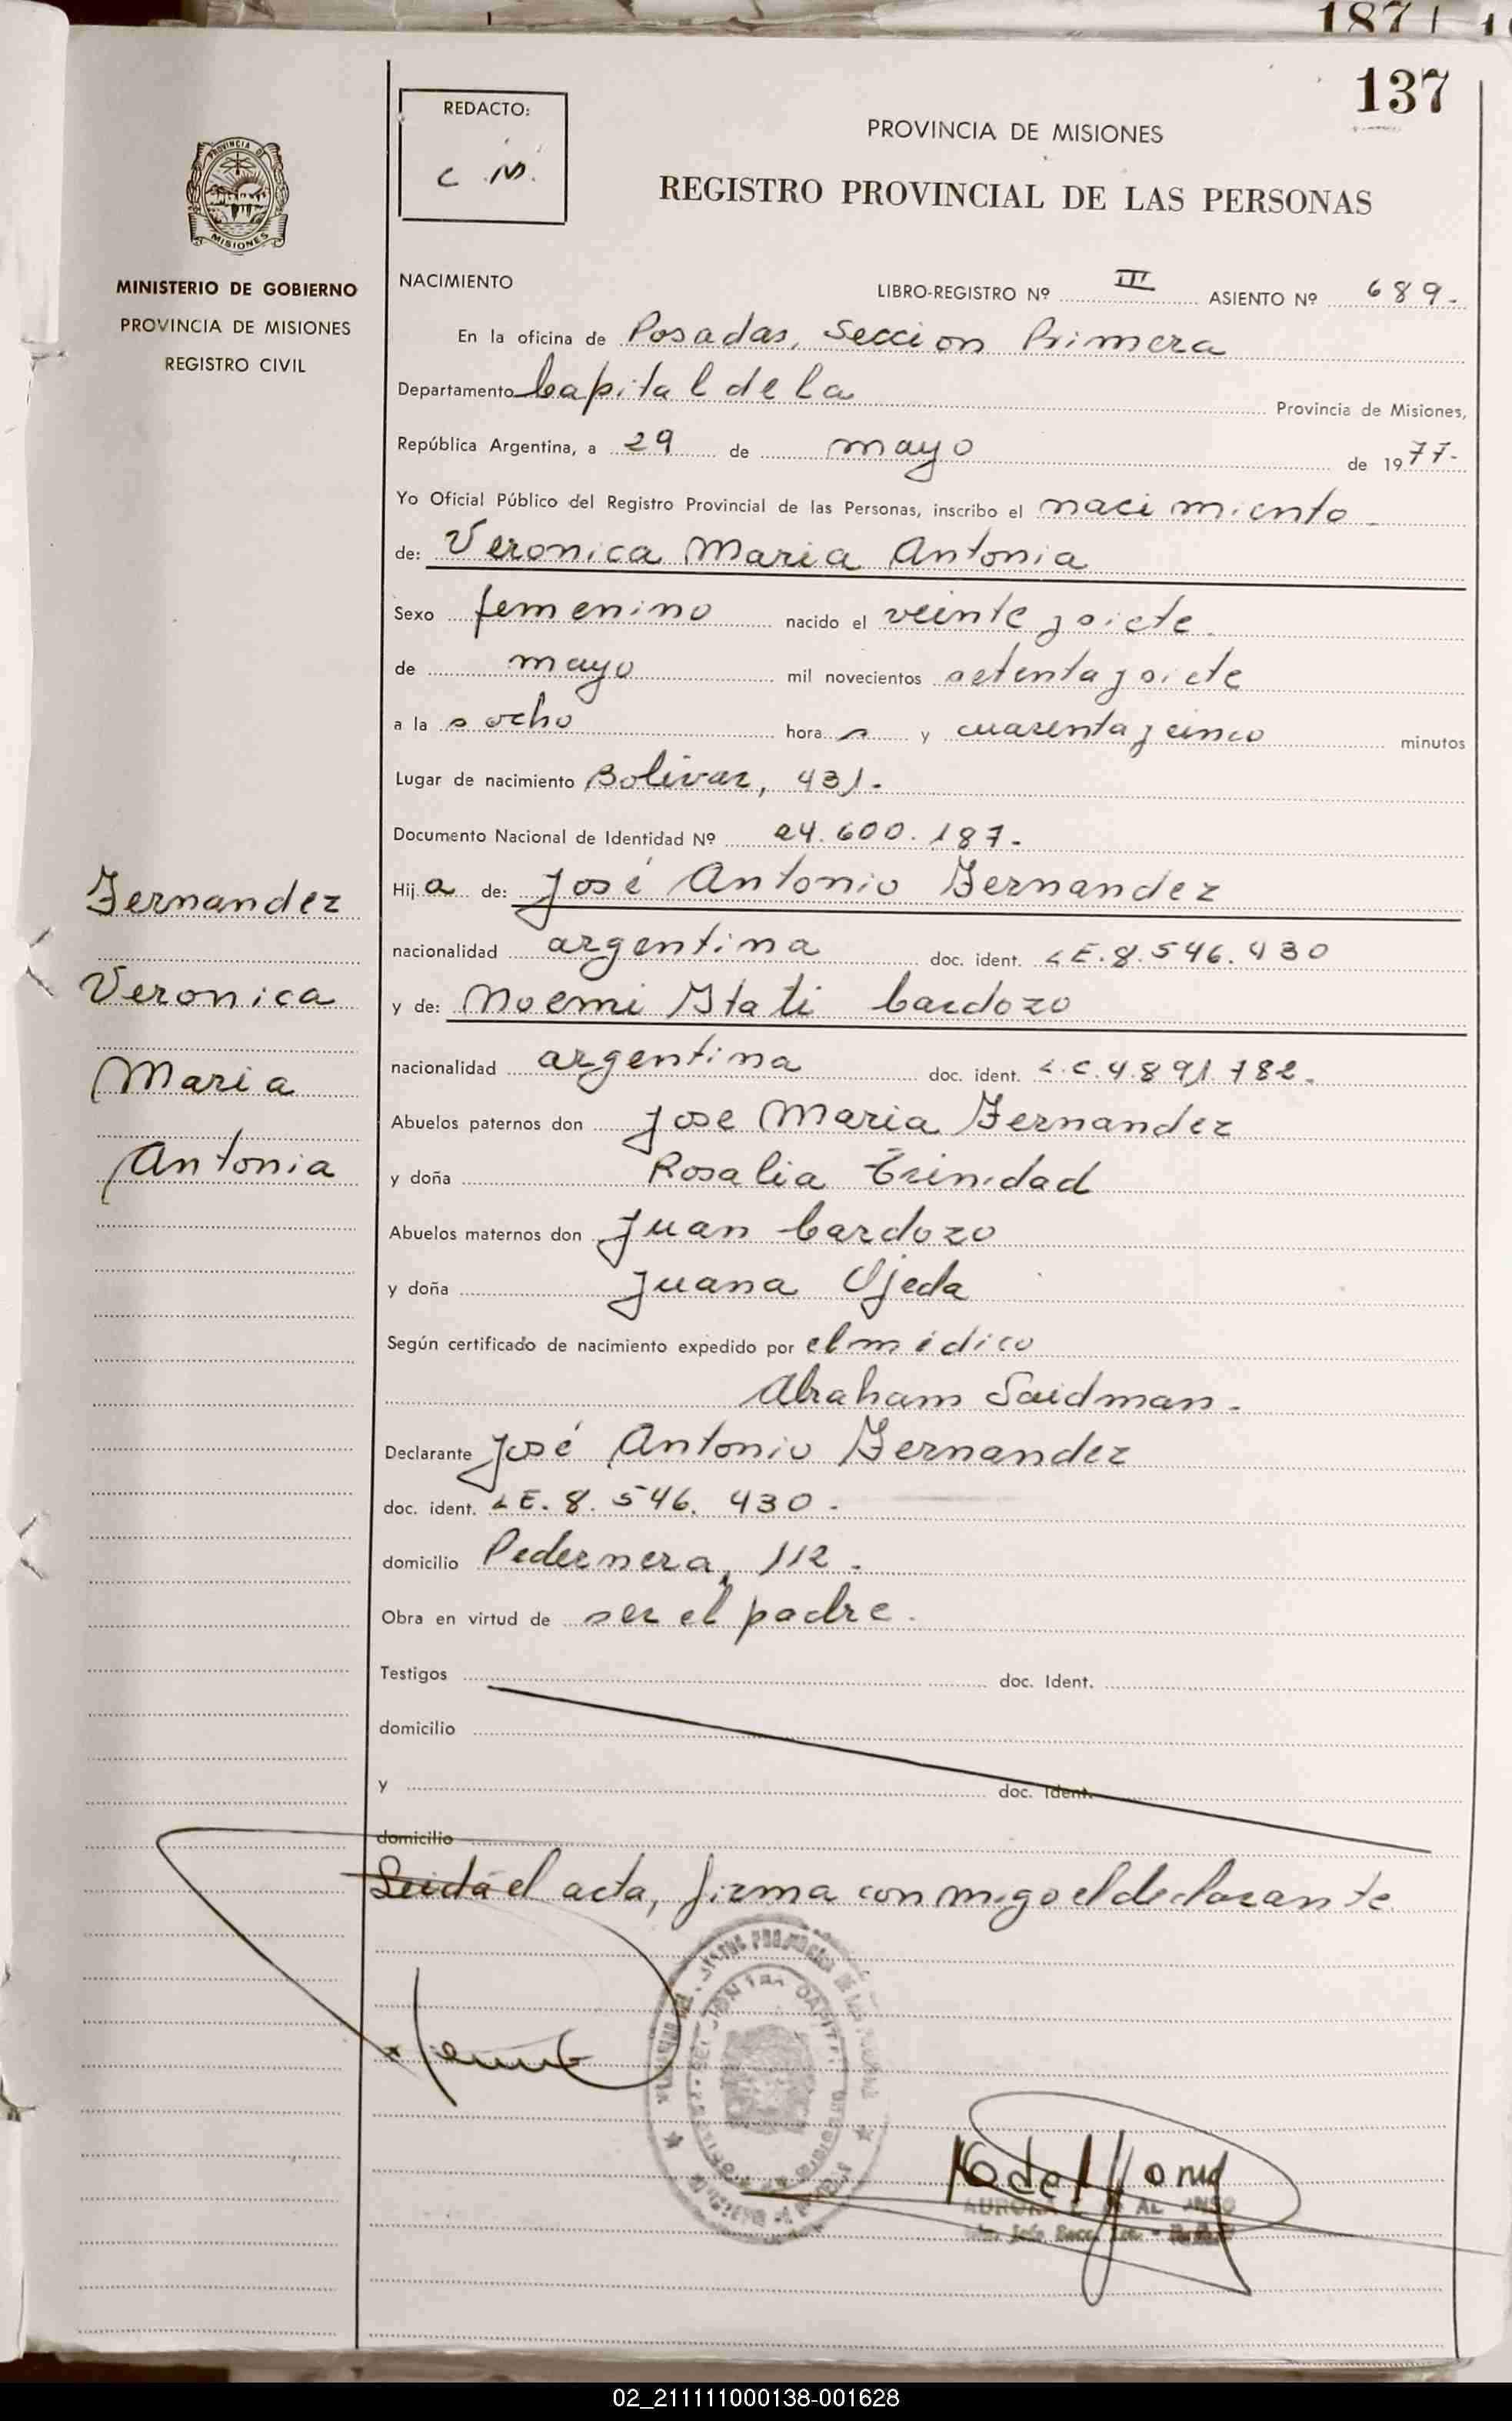 187
137
REDACTO:
C.M.
PROVINCIA DE MISIONES
REGISTRO PROVINCIAL DE LAS PERSONAS
PROVINCIA DE
MISIONES
MINISTERIO DE GOBIERNO
PROVINCIA DE MISIONES
REGISTRO CIVIL
NACIMIENTO LIBRO-REGISTRO Nº III ASIENTO Nº 689.-
En la oficina de Posadas, Seccion Primera
Departamento Capital de la Provincia de Misiones,
República Argentina, a 29 de mayo de 1977-
Yo Oficial Público del Registro Provincial de las Personas, inscribo el nacimiento
de: Veronica Maria Antonia
Sexo femenino nacido el veinte y siete
de mayo mil novecientos setenta y siete
a la s ocho hora s y cuarenta y cinco minutos
Lugar de nacimiento Bolivar, 431.
Documento Nacional de Identidad Nº 24.600.187.-
Hij a de: José Antonio Fernandez
nacionalidad argentina doc. ident. LE.8.546.430
y de: Noemi Itati Cardozo
nacionalidad argentina doc. ident. L.C.4.891.782.
Abuelos paternos don Jose Maria Fernandez
y doña Rosalia Trinidad
Abuelos maternos don Juan Cardozo
y doña Juana Ojeda
Según certificado de nacimiento expedido por el médico
Abraham Saidman.
Declarante José Antonio Fernandez
doc. ident. LE. 8. 546. 430.
domicilio Pedernera, 112.
Obra en virtud de ser el padre.
Testigos doc. Ident.
domicilio
y doc. Ident.
domicilio
Leida el acta, firma conmigo el declarante
Fernandez
Veronica
Maria
Antonia
AURORA
02_211111000138-001628